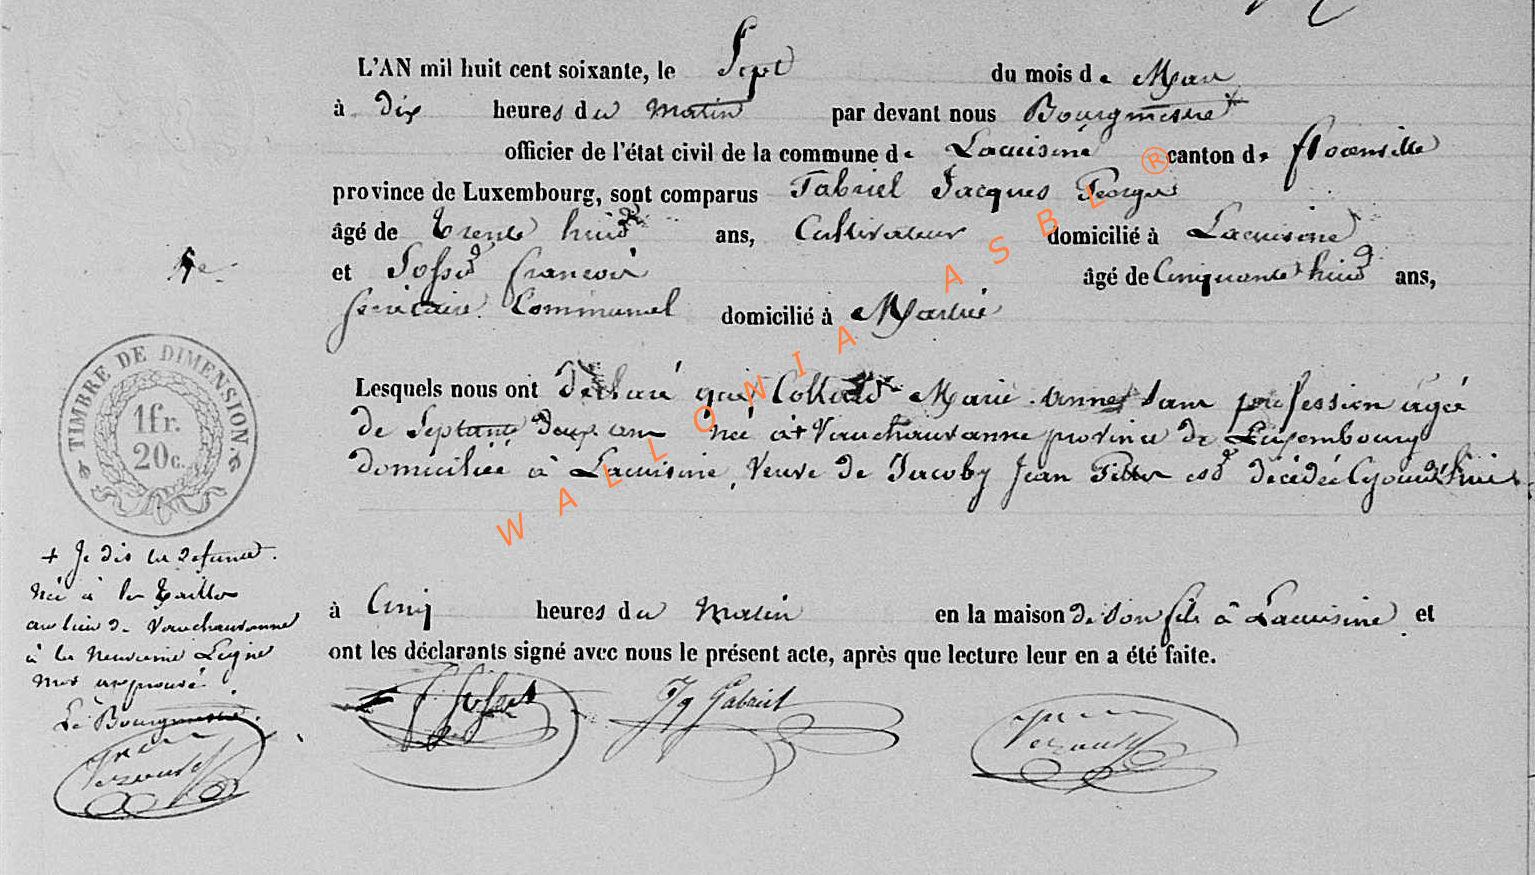 L'AN mil huit cent soixante, le Sept du mois de Mars
à dix heures du matin par devant nous Bourgmestre
officier de l'état civil de la commune de Lacuisine canton de florenville
province de Luxembourg, sont comparus Gabriel Jacques George
âgé de trente huit ans, Cultivateur domicilié à Lacuisine
et françois âgé de Cinquante huit ans,
Secrétaire Communal domicilié à Martué
Lesquels nous ont déclaré que Collard Marie anne sans profession agée
de Septante deux ans née à + Vauchavanne province de Luxembourg
domiciliée à Lacuisine, veuve de Jacoby Jean est décédée
à Cinq heures du Matin en la maison de son fils à Lacuisine et
ont les déclarants signé avec nous le présent acte, après que lecture leur en a été faite.
TIMBRE DE DIMENSION.
1fr.
20c.
+ Je dis la défunte
née à la
au lieu de Vauchavanne
à la neuvième Ligne
mot approuvé
Le Bourgmestre.
Jq Gabriel
WALLONIA ASBL ®